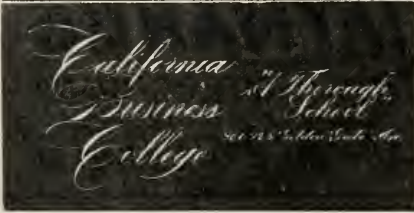 California
Business
College
"A Thorough
School"
Golden Gate Ave.